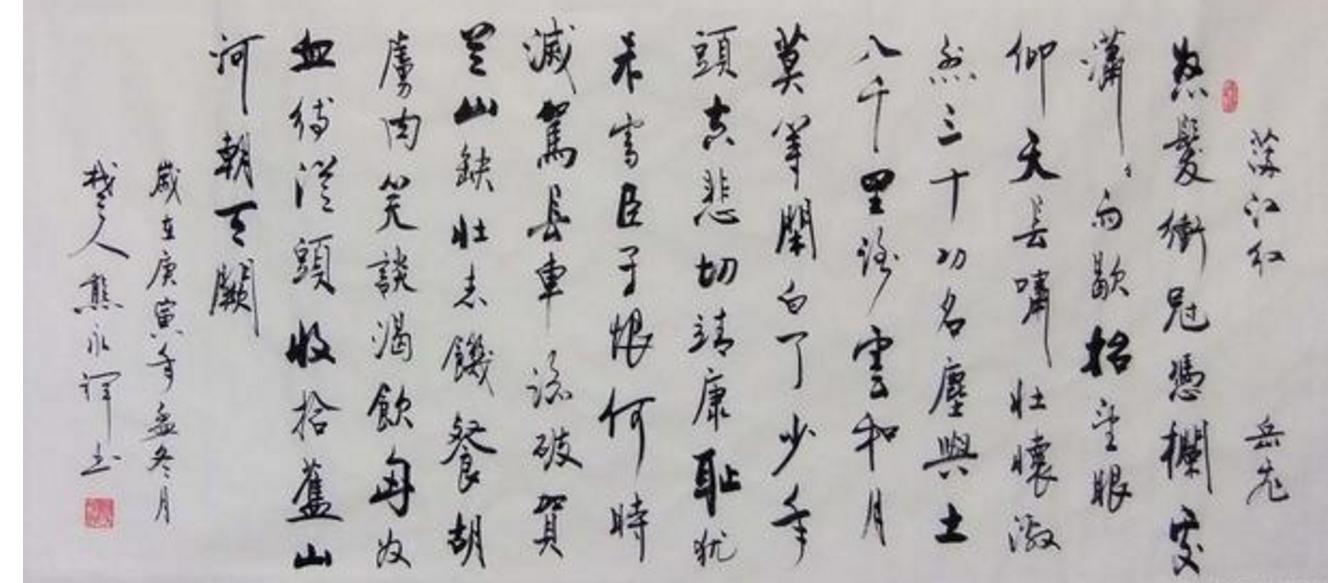 滿江紅 岳飛
怒髮衝冠憑欄處
瀟〻雨歇抬望眼
仰天長嘯壯懷激
烈三十功名塵與土
八千里路雲和月
莫等閑白了少年
頭空悲切靖康耻犹
未雪臣子恨何時
滅駕長車踏破賀
蘭山缺壯志饑餐胡
虜肉笑談渴飲匈奴
血待從頭收拾舊山
河朝天闕
歲在庚寅年孟冬月
楚人熊永書